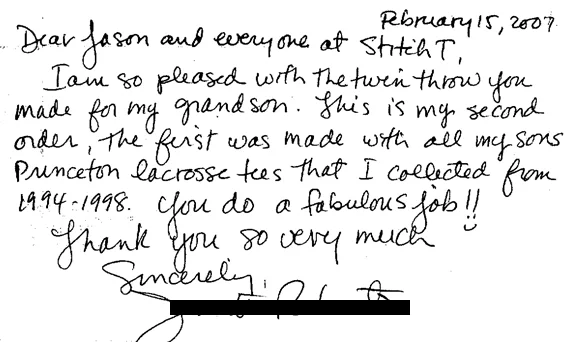 February 15, 2007
Dear Jason and everyone at Stitch T,
I am so pleased with the twin throw you
made for my grandson. This is my second
order, the first was made with all my sons
Princeton lacrosse tees that I collected from
1994-1998. You do a fabulous job!!
Thank you so very much
Sincerely,